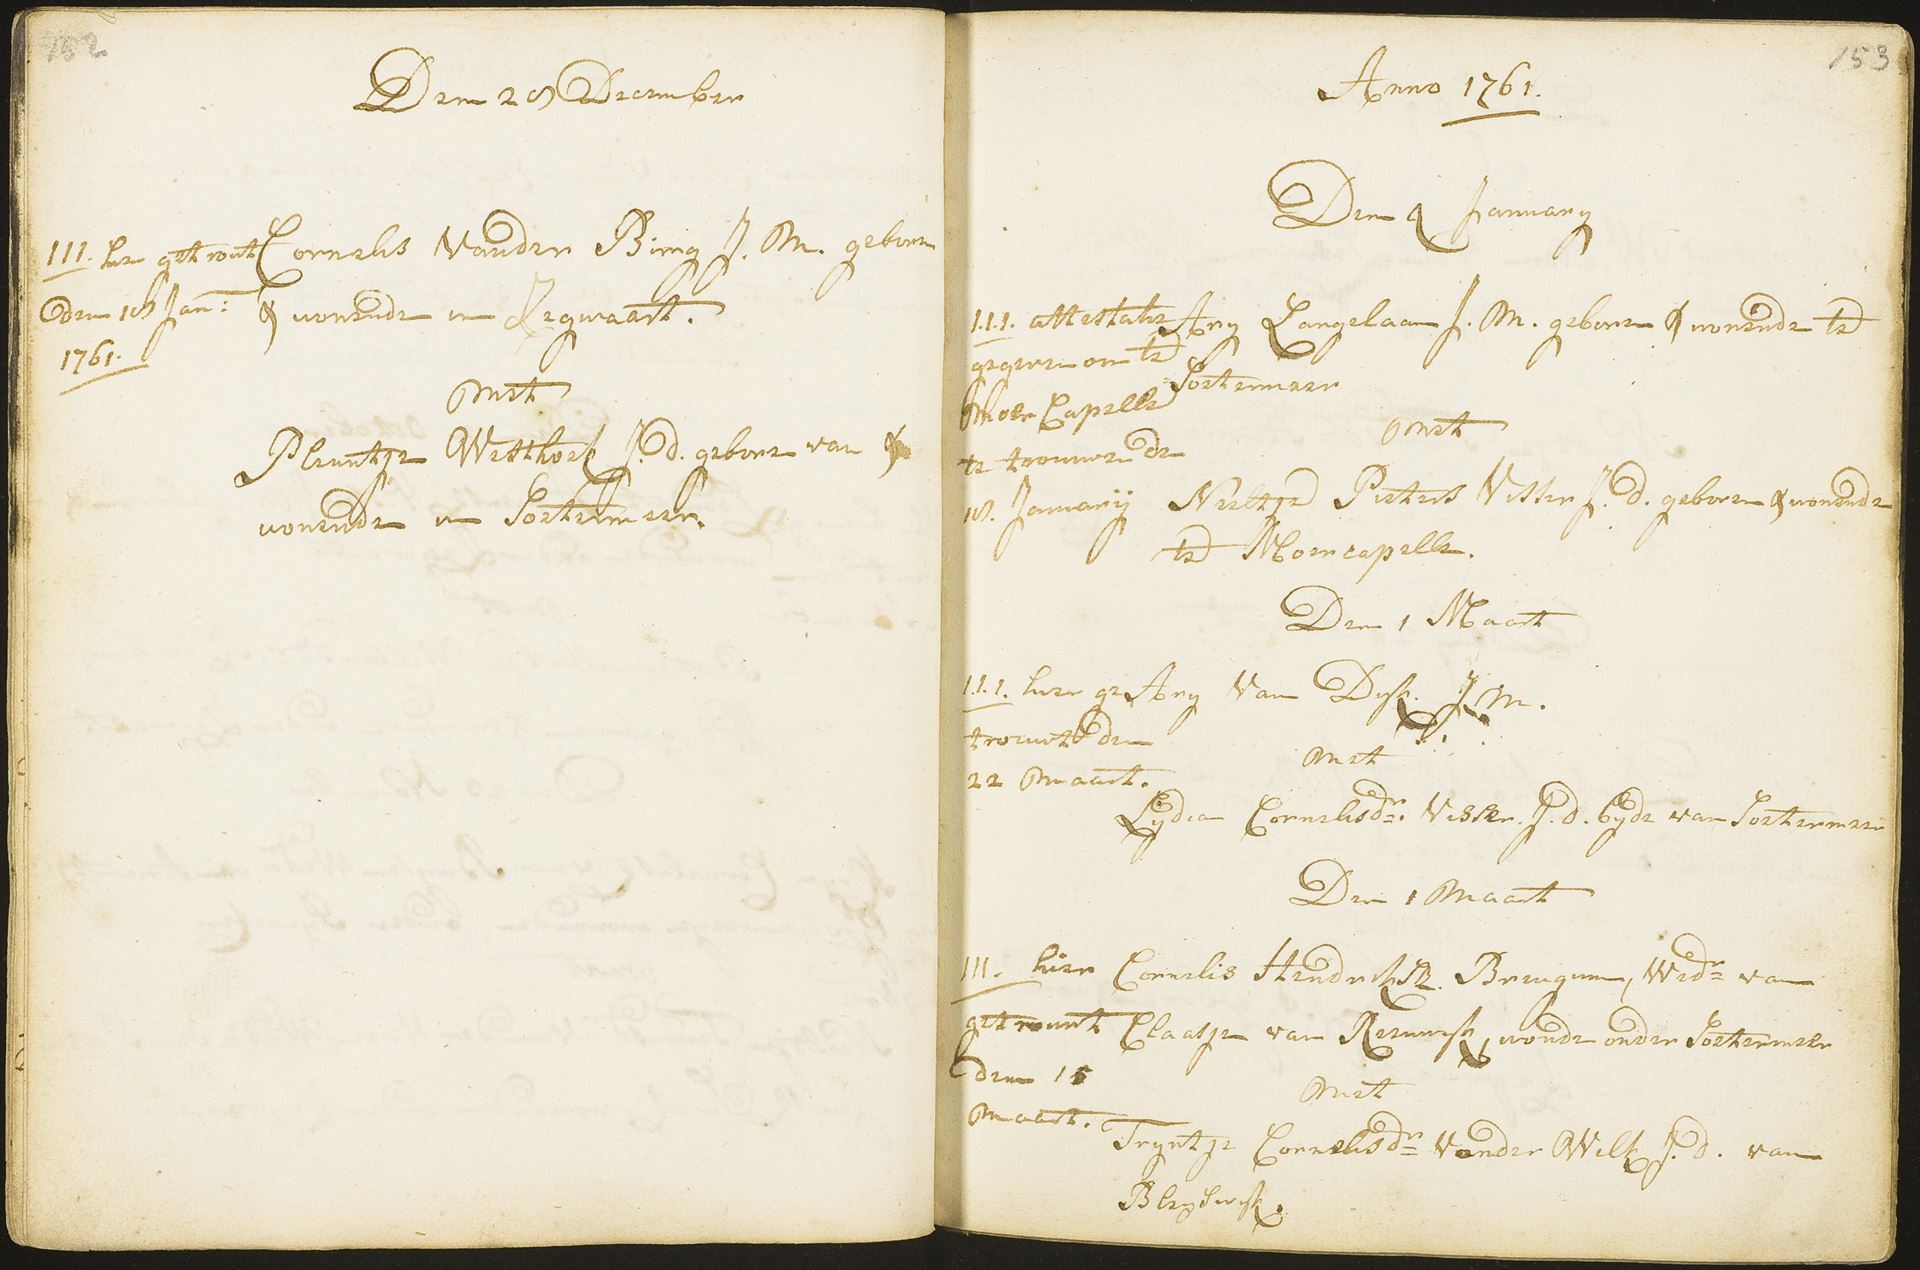 152
Den 28 December
III. hier getrout Cornelis Vander Burg J. M. geboren
den 18 Jan: & wonende in Zegwaart.
1761.
met
Pleuntje Westhoek J. d. geboren van &
wonende in Soetermeer.
153
Anno 1761.
Den 4 January
I.I.I. attestatie Ary Langelaan J. M. geboren & wonende te
gegeven om te Soetermeer
Moer Capelle
te trouwen de met
18. January Neeltje Pieters Visser J. d. geboren & wonende
te Moercapelle.
Den 1 Maart
I.I.I. hier ge Ary Van Dyk J. M.
trouwt den
22 Maart. met
Lydia Cornelisdr. Visser. J. d. byde van Soetermeer
Den 1 Maart
III. hier Cornelis Hendriksz. Breugem, Wedr van
getrouwt Claasje van Reeuwyk, wonde onder Soetermeer
den 15 met
Maart. Tryntje Cornelisdr Vander Wilk J. d. van
Bleyswyk.